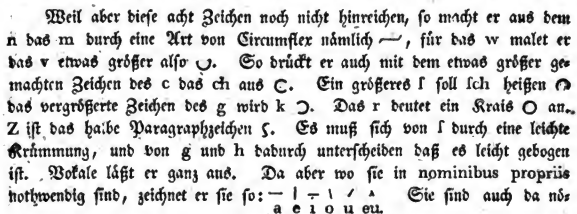 Weil aber diese acht Zeichen noch nicht hinreichen, so macht er aus dem
n das m durch eine Art von Circumflex nämlich ⁓, für das w malet er
das v etwas größer also ◡. So drückt er auch mit dem etwas größer ge-
machten Zeichen des c das ch aus C. Ein größeres ſ soll sch heißen
das vergrößerte Zeichen des g wird k Ɔ. Das r deutet ein Krais O an.
Z ist das halbe Paragraphzeichen ʕ. Es muß sich von ſ durch eine leichte
Krümmung, und von g und h dadurch unterscheiden daß es leicht gebogen
ist. Vokale läßt er ganz aus. Da aber wo sie in nominibus propriis
nothwendig sind, zeichnet er sie so: Sie sind auch da nö-
a e i o u eu.